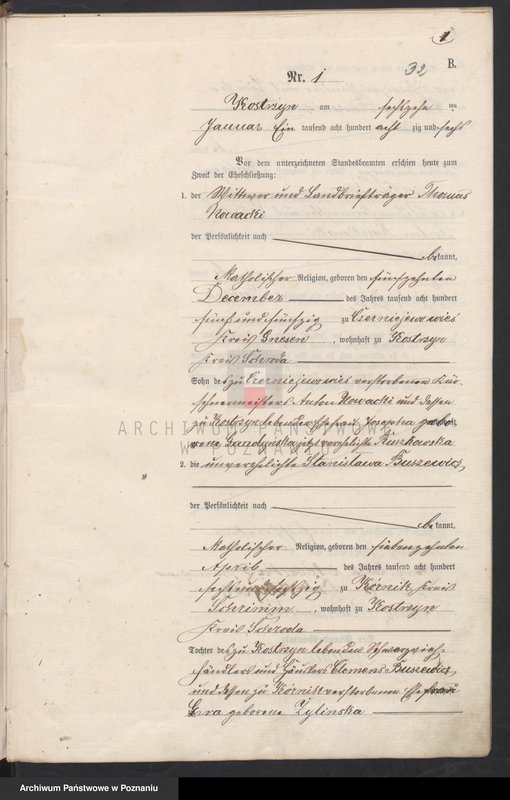 1
32
B.
Nr. 1
Kostrzyn am sechszehn ten
Januar Ein tausend acht hundert acht zig und sechs
Vor dem unterzeichneten Standesbeamten erschien heute zum
Zweck der Eheschließung:
1. der Wittwer und Landbriefträger Thomas
Nowacki
der Persönlichkeit nach
be kannt,
Katholischer Religion, geboren den fünfzehnten
December des Jahres tausend acht hundert
fünf und fünfzig zu Czerniejewo wies
Kreis Gnesen, wohnhaft zu Kostrzyn
Kreis Schroda
Sohn des zu Czerniejewo wies verstorbenen Kür-
schnermeisters Anton Nowacki und dessen
zu Kostrzyn lebenden Ehefrau Josepha gebo-
rene jetzt verehelichte Ruszkowska
2. die unverehelichte Stanislawa Buszewicz
der Persönlichkeit nach
be kannt,
Katholischer Religion, geboren den siebenzehnten
April des Jahres tausend acht hundert
sechs und zig zu Kórnik Kreis
Schrimm, wohnhaft zu Kostrzyn
Kreis Schroda
Tochter des zu Kostrzyn lebenden Schwarzvieh-
händlers und Häuslers Clemens Buszewicz
und dessen zu Kórnik verstorbenen Ehefrau
Eva geborene Zylinska
ARCHIWUM PAŃSTWOWE
W POZNANIU
Archiwum Państwowe w Poznaniu